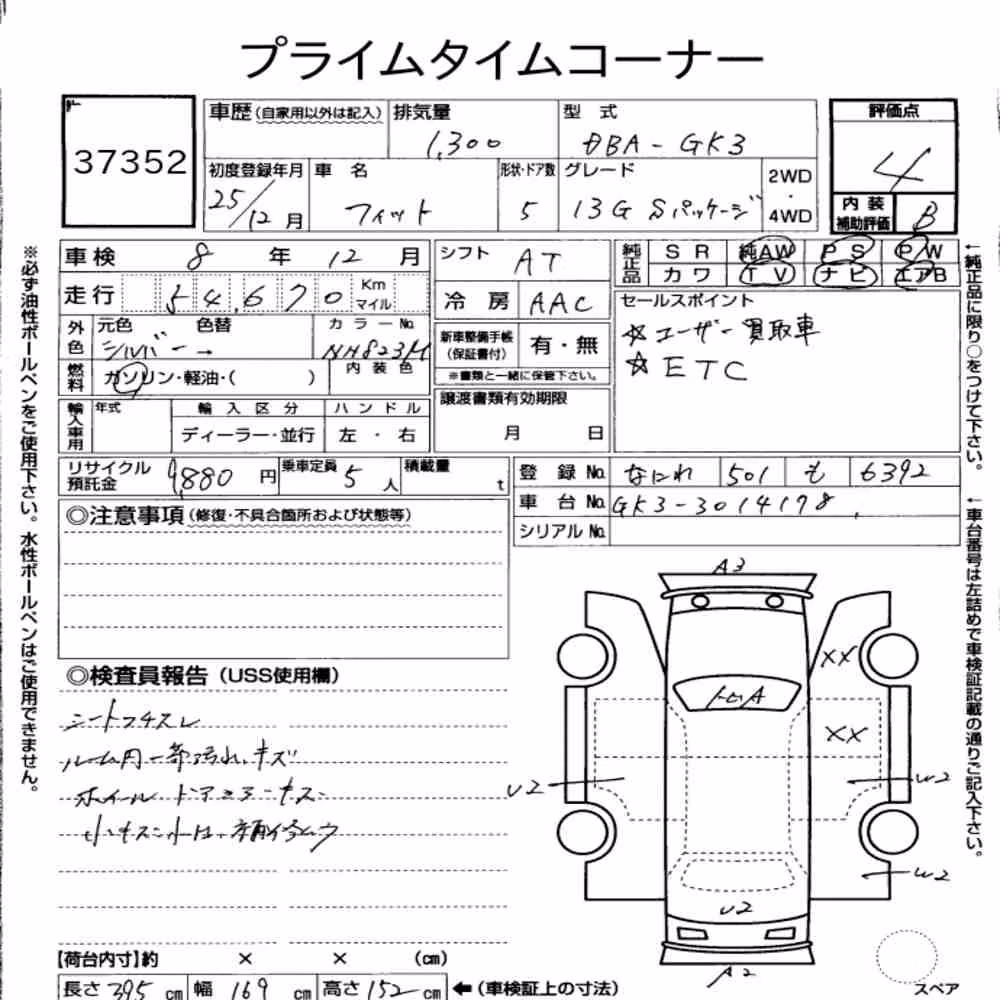 プライムタイムコーナー
37352
車歴 (自家用以外は記入) 排気量 1,300 型 式 DBA-GK3
評価点 4
初度登録年月 25/12月 車 名 フィット 形状・ドア数 5 グレード 13G Sパッケージ 2WD ・ 4WD
内 装 補助評価 B
車検 8 年 12 月 シフト AT
純正品 SR 純AW PS PW
カワ TV ナビ エアB
走行 54,670 Km マイル 冷 房 AAC
セールスポイント
☆ユーザー買取車
☆ETC
外色 元色 シルバー 色替 → カラーNo. NH823M
新車整備手帳 (保証書付) 有・無
※書類と一緒に保管下さい。
燃料 ガソリン・軽油・( ) 内 装 色
譲渡書類有効期限
月 日
輸入車用 年式 輸 入 区 分 ハ ン ド ル
ディーラー・並行 左 ・ 右
リサイクル預託金 9,880 円 乗車定員 5 人 積載量 t
登 録 No. なにわ 501 も 6392
車 台 No. GK3-3014178
シリアル No.
◎注意事項 (修復・不具合箇所および状態等)
◎検査員報告 (USS使用欄)
シートフチスレ
ルーム内一部汚れ、キズ
ホイール ドアミラーキズ
小キズ
A3
XX
XX
U2
W2
W2
U2
A2
スペア
【荷台内寸】約 × × (cm)
長さ 395 cm 幅 169 cm 高さ 152 cm ←(車検証上の寸法)
※必ず油性ボールペンをご使用下さい。水性ボールペンはご使用できません。
←純正品に限り○をつけて下さい。
←車台番号は左詰めで車検証記載の通りご記入下さい。